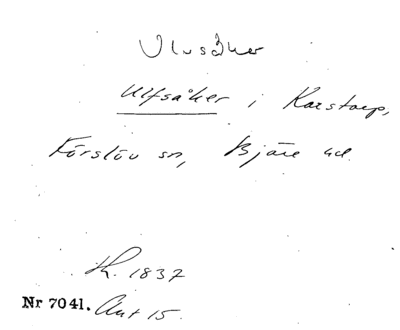 Ulvsåker
Ulfsåker i Karstorp,
Förslöv sn, Bjäre hd.
h. 1837
Nr 7041. Akt 15.